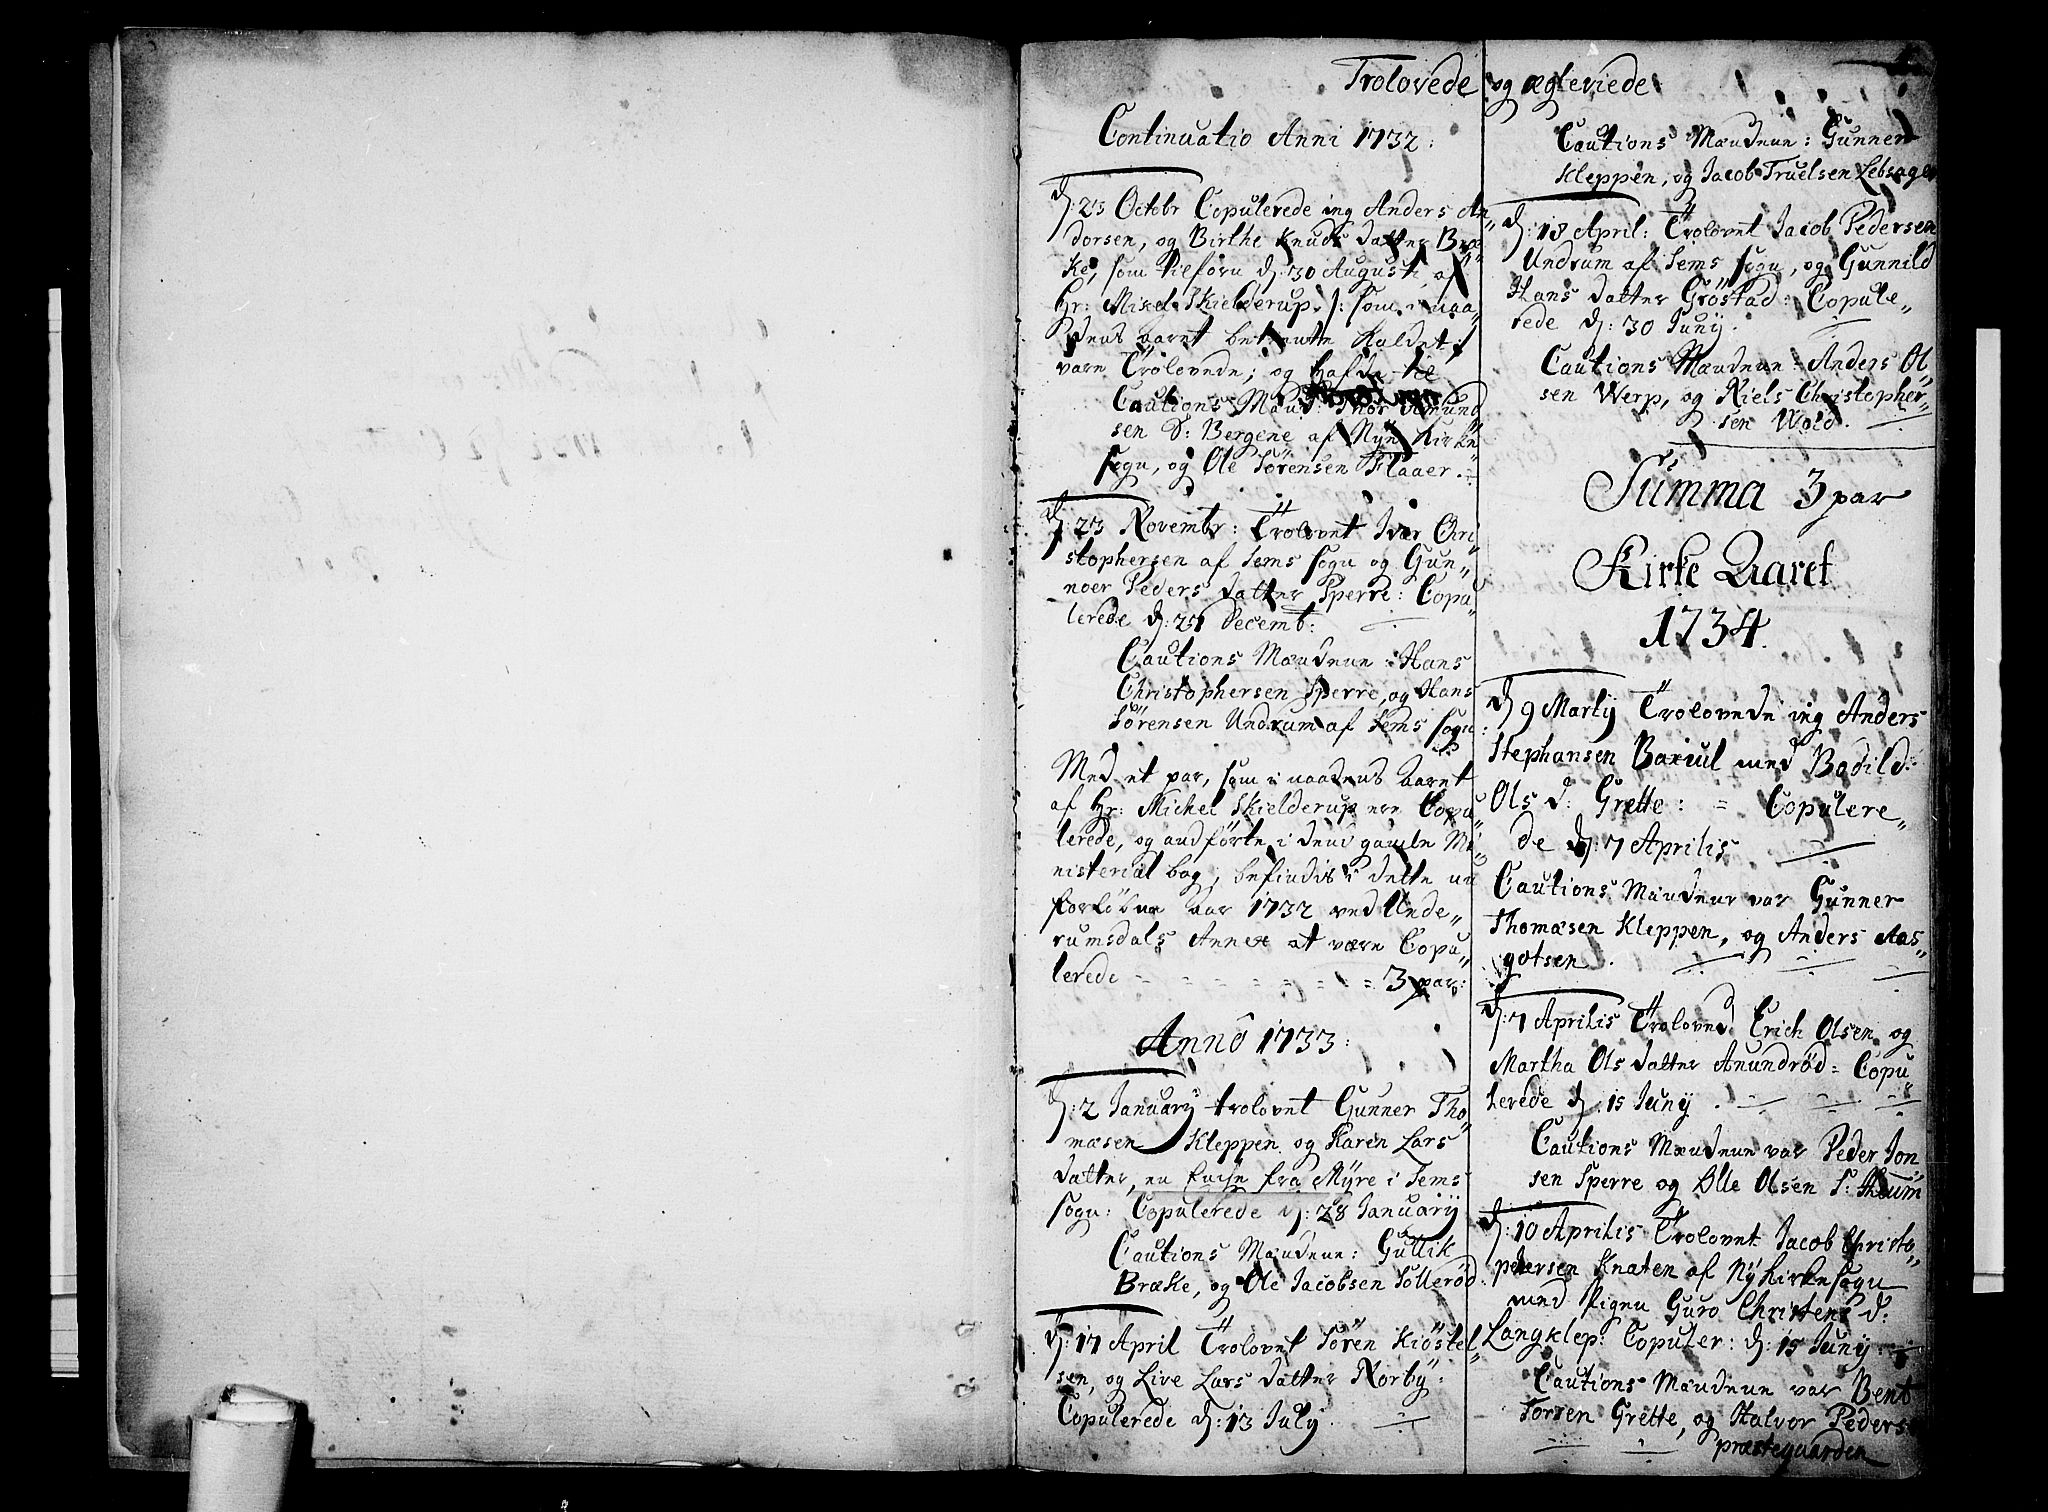 Trolovede og ægteviede
Continuatio Anni 1732:
d: 23 Octobr Copulerede ieg Anders An„
dersen, og Birthe Knuds datter Bræ„
ke, som tilforn d: 30 Augusti af
Hr: Mikel Skielderup /: som i naa„
dens aaret betiente Kaldet :/
vare Trolovede; og hafde til
Cautions Mænd: Thor Amund
sen S: Bergene af Nye Kirke
sogn, og Ole Sörensen Flaaer.
d: 23 Novembr: Trolovet Iver Chri„
stophersen af Sems sogn og Gun„
noer Peders datter Sperre: Copu„
lerede d: 27 Decemb:
Cautions Mændene: Hans
Christophersen Sperre, og Hans
Sörensen Undrum af Sems sogn
Med et par, som i naadens aaret
af Hr: Michel Skielderup ere Copu„
lerede, og anförte i dend gamle Mi„
nisterial bog, befindis i dette nu
forlöbne aar 1732 ved Unde„
rumsdals Annex at være Copu„
lerede = = = = = = = 3 par:
Annô 1733:
d: 2 January trolovet Gunner Tho„
mæsen Kleppen og Karen Lars
datter, en Enche fra Myre i Sems
sogn: Copulerede d: 28 January
Cautions Mændene: Gullik
Bræke, og Ole Jacobsen Sollerød
d: 17 April Trolovet Sören Kiöstel„
sen, og Live Lars datter Norby:
Copulerede d: 13 July
Cautions Mændene: Gunner
Kleppen, og Jacob Truelsen Lebsager
d: 18 April: Trolovet Jacob Pedersen
Undrum af Sems sogn, og Gunnild
Hans datter Gröstad: Copule„
rede d: 30 Juny.
Cautions Mændene: Anders Ol„
sen Werp, og Niels Christopher„
sen Wold.
Summa 3 par
Kirke Aaret
1734.
d 9 Martij Trolovede ieg Anders
Stephansen Bariul med Bodild
Ols d: Grette: = Copulere„
de d: 7 Aprilis
Cautions Mændene var Gunner
Thomæsen Kleppen, og Anders Aas„
gotsen.
d: 7 Aprilis Troloved Erich Olsen og
Martha Ols datter Anundrød = Copu„
lerede d. 15 Juny.
Cautions Mændene var Peder Jon„
sen Sperre og Olle Olsen S:
d: 10 Aprilis Trolovet Jacob Christo„
phersen Knatten af Nykirke sogn
med Pigen Guro Christens d:
Langklep: Copuler: d: 15 Juny
Cautions Mændene var Bent
Torsen Grette, og Halvor Peders:
præstegaarden